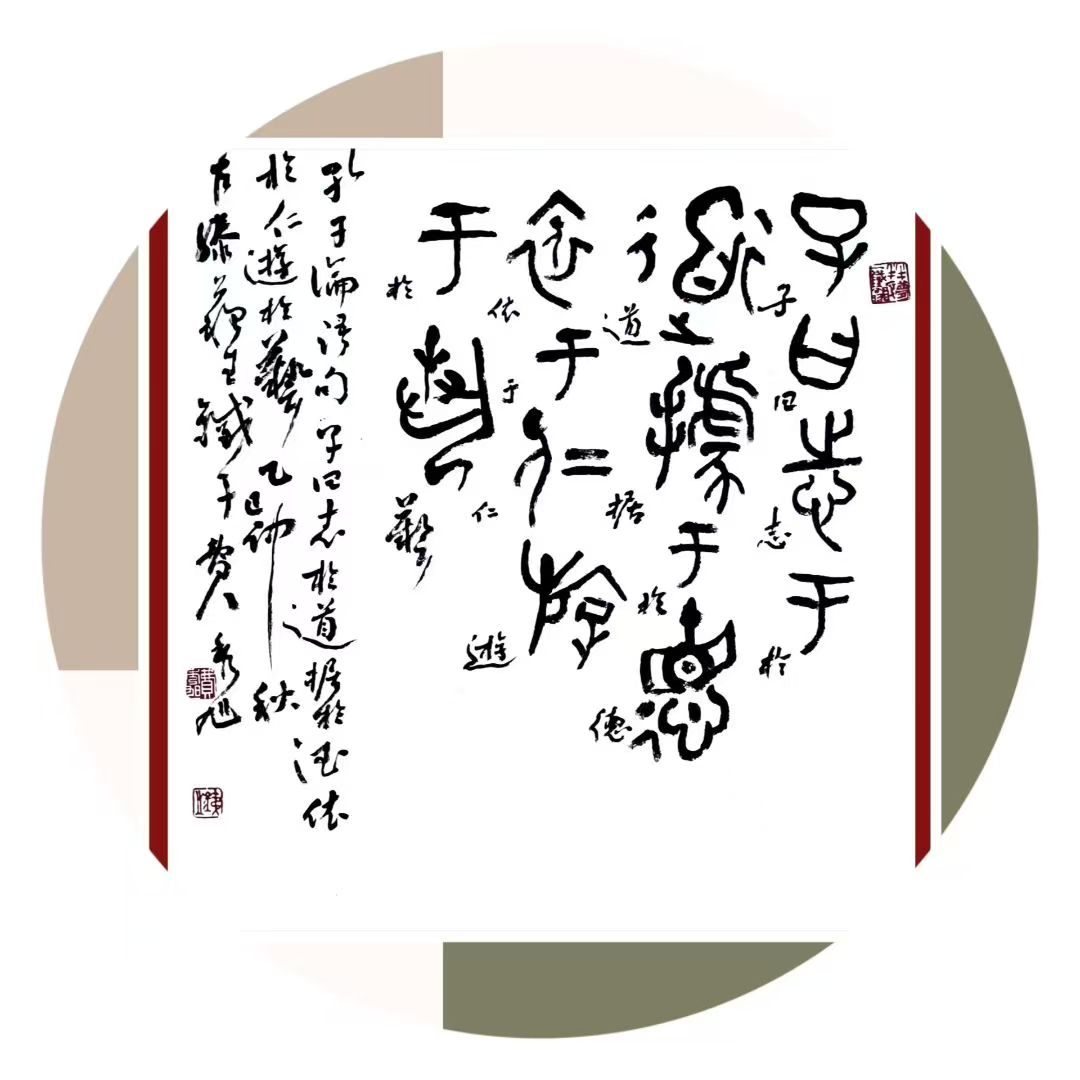 子曰志于
子曰志於
道據于德
道据於德
依于仁游
依于仁遊
于藝
於藝
孔子論语句子曰志於道据於德依
於仁遊於藝乙巳仲秋
古滕鐵費人秀旭